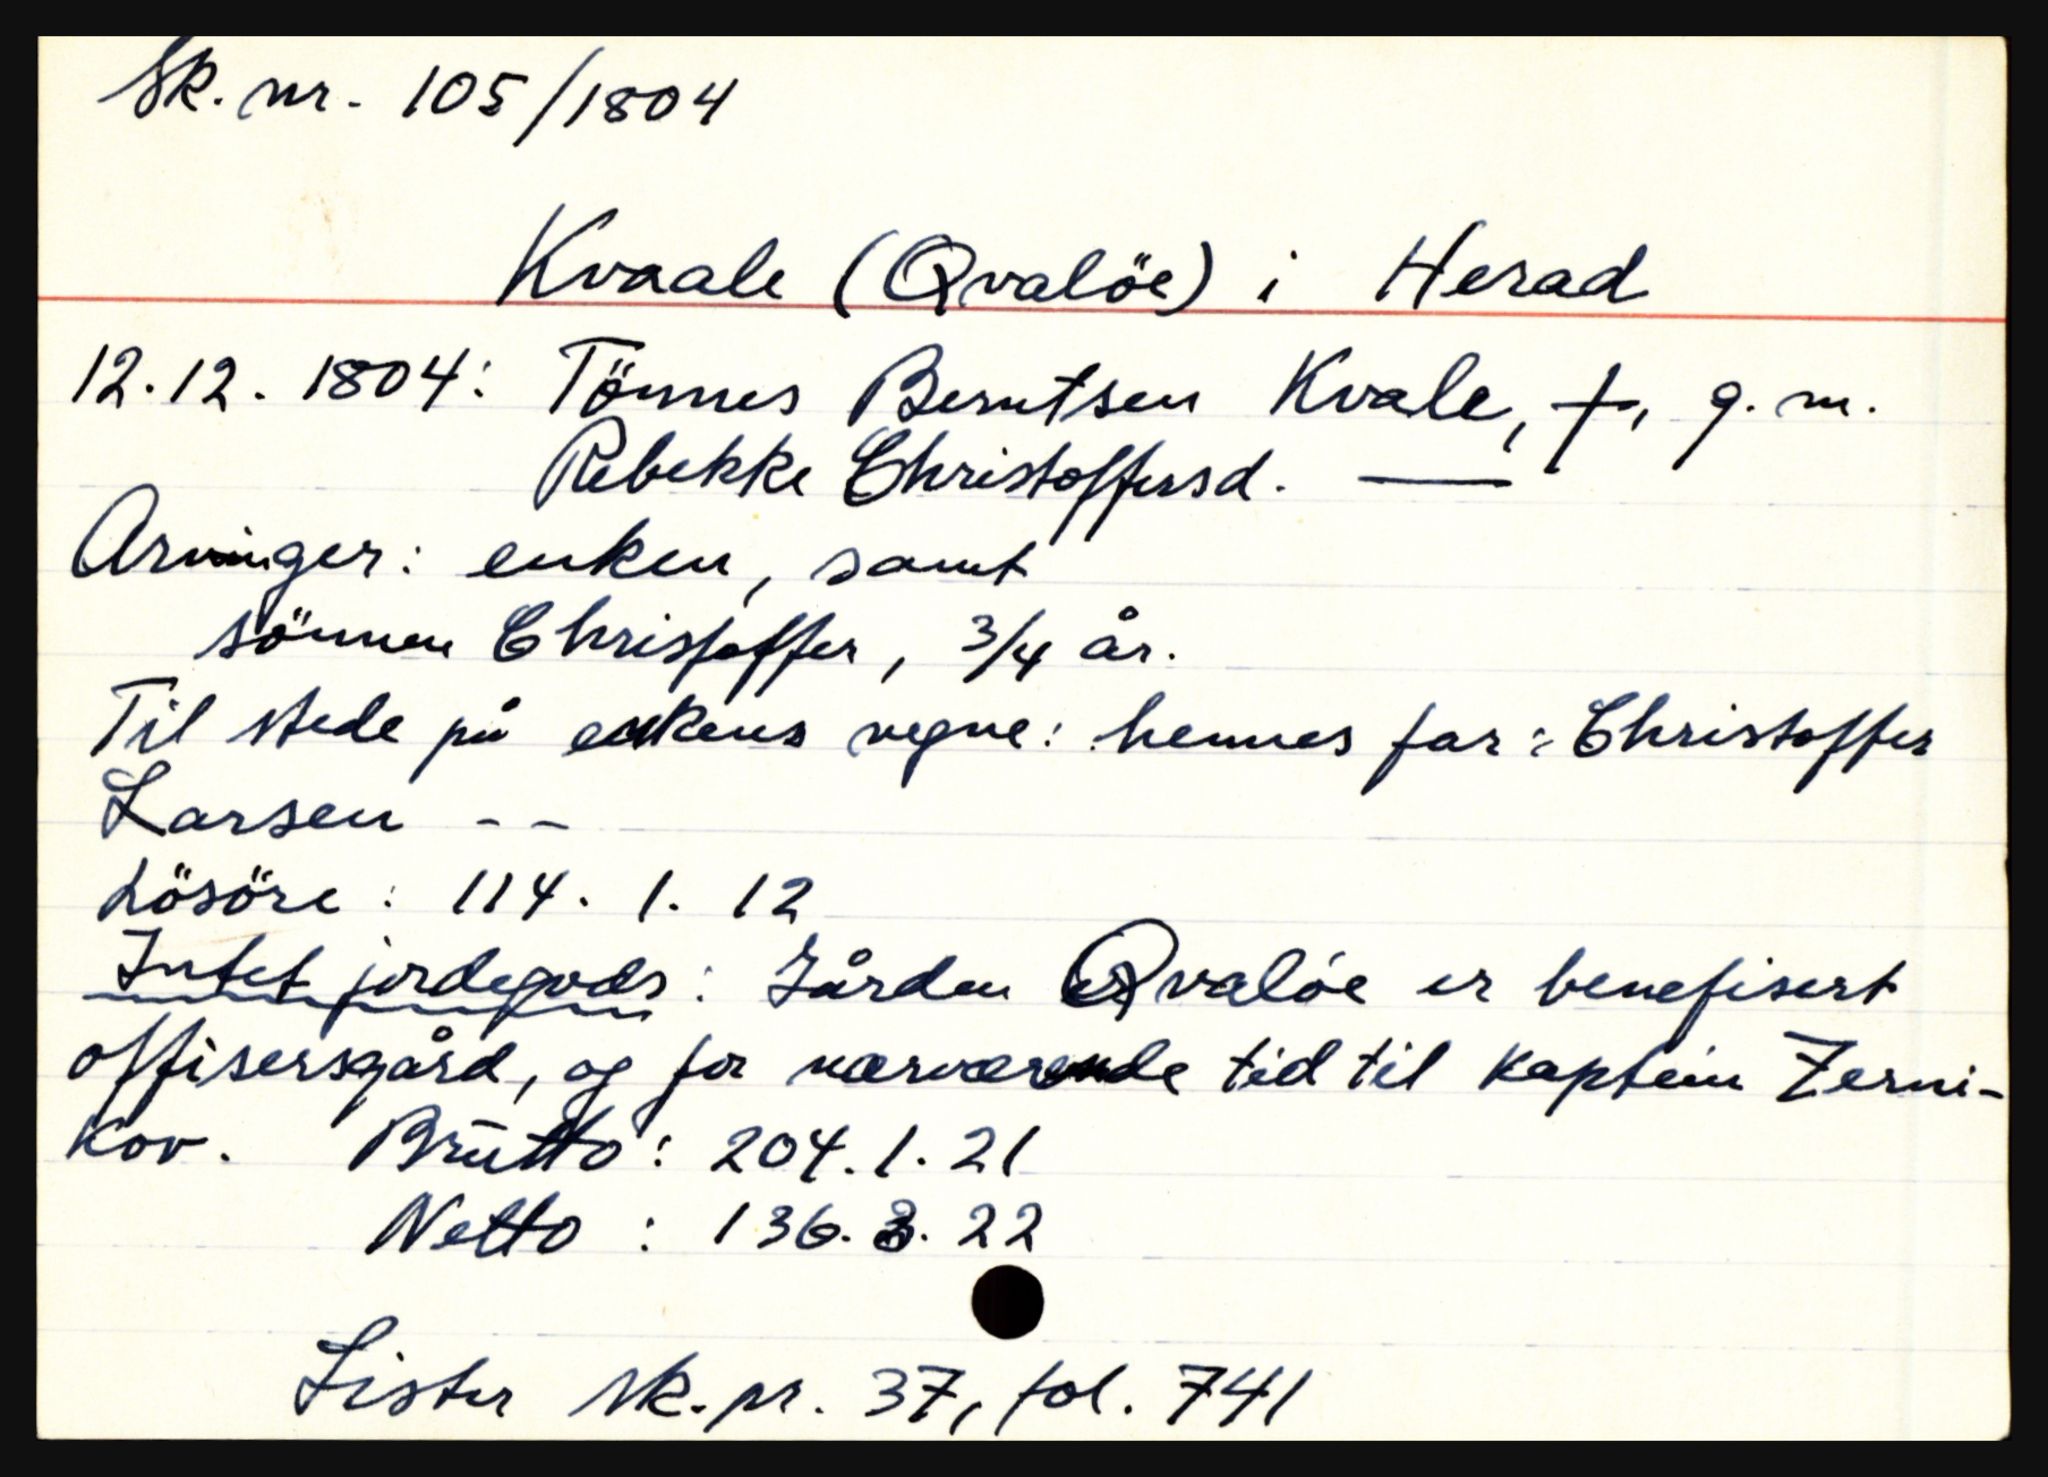 Sk. nr. 105/1804
Kvaale (Qvalöe) i Herad
12.12. 1804: Tönnes Berntsen Kvale, †, g. m.
Rebekke Christoffersd. —
Arvinger: enken, samt
sönnen Christoffer, 3/4 år.
Til stede på enkens vegne: hennes far: Christoffer
Larsen - -
Lösöre: 114. 1. 12
Intet jordegods: Gården Qvalöe er benefisert
offisersgård, og for nærværende tid til kaptein Zerni-
kov. Brutto: 204. 1. 21
Netto: 136. 3. 22
Lister sk. pr. 37, fol. 741